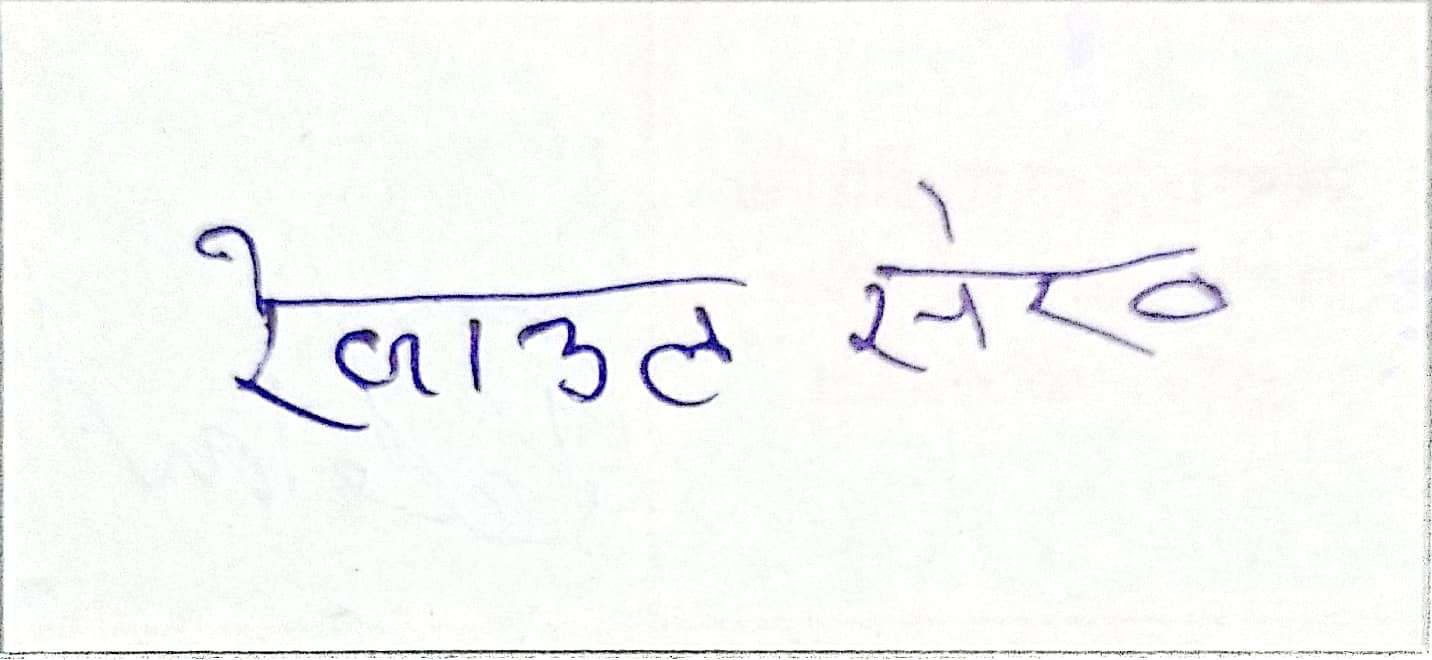 रेजाउल सेख